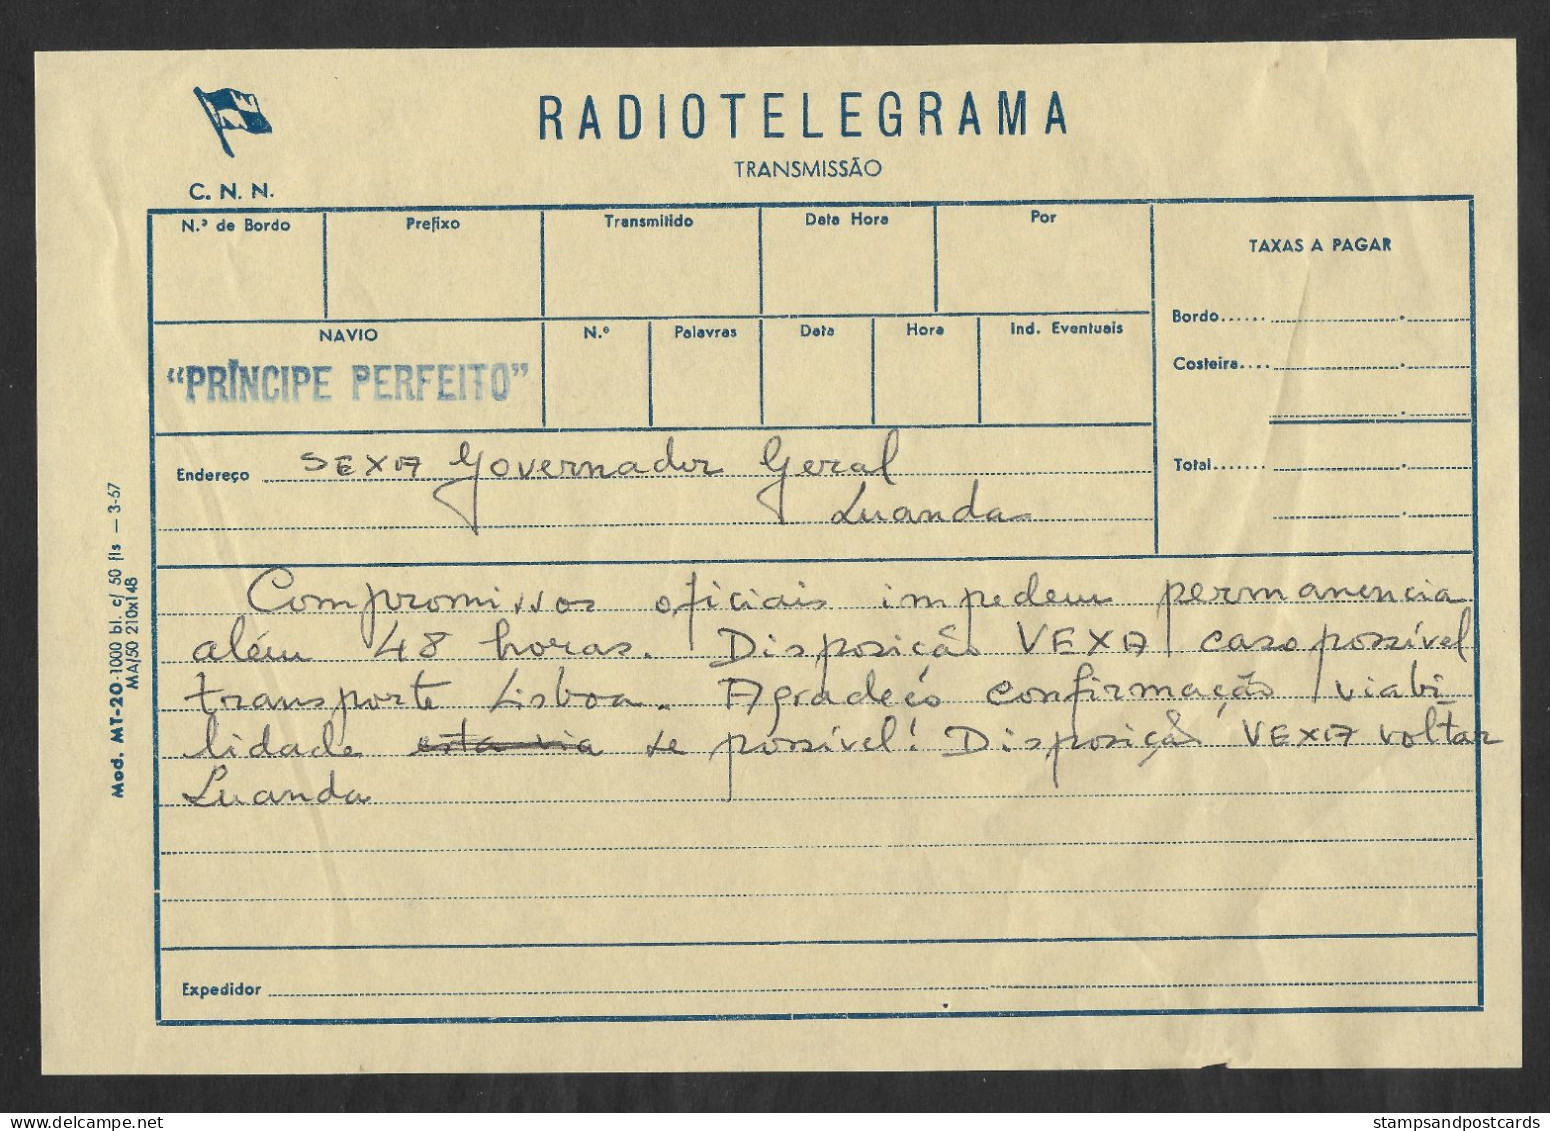 RADIOTELEGRAMA
TRANSMISSÃO
C. N. N.
N.º de Bordo Prefixo Transmitido Data Hora Por
TAXAS A PAGAR
Bordo......
Costeira....
Total.......
NAVIO N.º Palavras Data Hora Ind. Eventuais
"PRÍNCIPE PERFEITO"
Endereço SEXA Governador Geral
Luanda
Compromissos oficiais impedem permanencia
além 48 horas. Disposição VEXA caso possível
transporte Lisboa. Agradeço confirmação viabi
lidade esta via se possível! Disposição VEXA voltar
Luanda
Expedidor
Mod. MT-20-1000 bl. c/ 50 fls — 3-67
M/A/50 210x148
stampsandpostcards